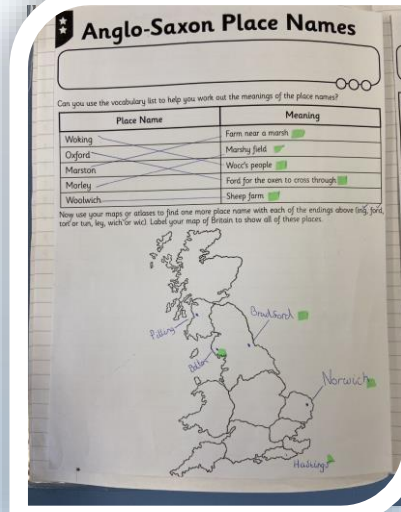 Anglo-Saxon Place Names
Can you use the vocabulary list to help you work out the meanings of the place names?
Place Name Meaning
Woking Farm near a marsh
Oxford Marshy field
Marston Wocc's people
Morley Ford for the oxen to cross through
Woolwich Sheep farm
Now use your maps or atlases to find one more place name with each of the endings above (ing, ford,
ton or tun, ley, wich or wic). Label your map of Britain to show all of these places.
Bradford
Norwich
Hastings